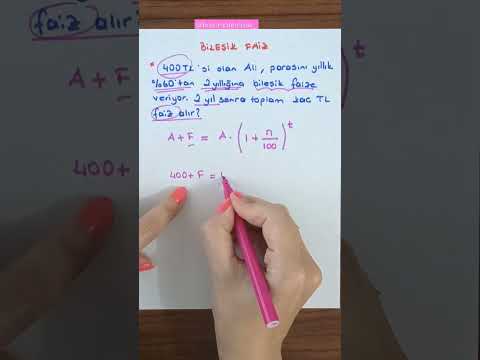 BİLEŞİK FAİZ
* 400 TL'si olan Ali, parasını yıllık
%60'tan 2 yıllığına bileşik faize
veriyor. 2 yıl sonra toplam kaç TL
faiz alır?
A + F = A . ( 1 + n/100 )^t
400 + F =
faiz alır
A + F